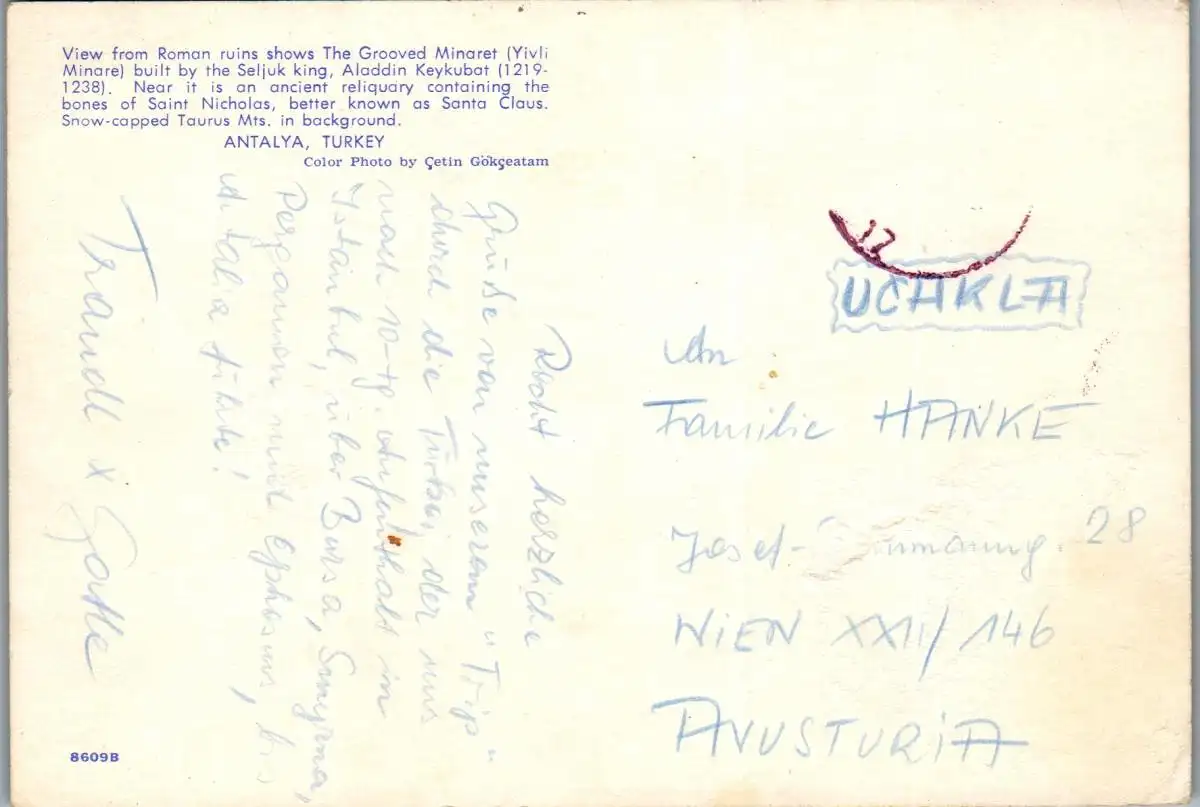 View from Roman ruins shows The Grooved Minaret (Yivli
Minare) built by the Seljuk king, Aladdin Keykubat (1219-
1238). Near it is an ancient reliquary containing the
bones of Saint Nicholas, better known as Santa Claus.
Snow-capped Taurus Mts. in background.
ANTALYA, TURKEY
Color Photo by Çetin Gökçeatam
Recht herzliche
Grüße von unserem "Trip"
durch die Türkei, der uns
nach 10-tg. Aufenthalt in
Istanbul, über Bursa, Smyrna,
Pergamon und Ephesus, bis
Antalia führte!
Traudl x
8609B
17
UÇAKLA
An
Familie HANKE
Josef- 28
WIEN XXII/146
AVUSTURIA